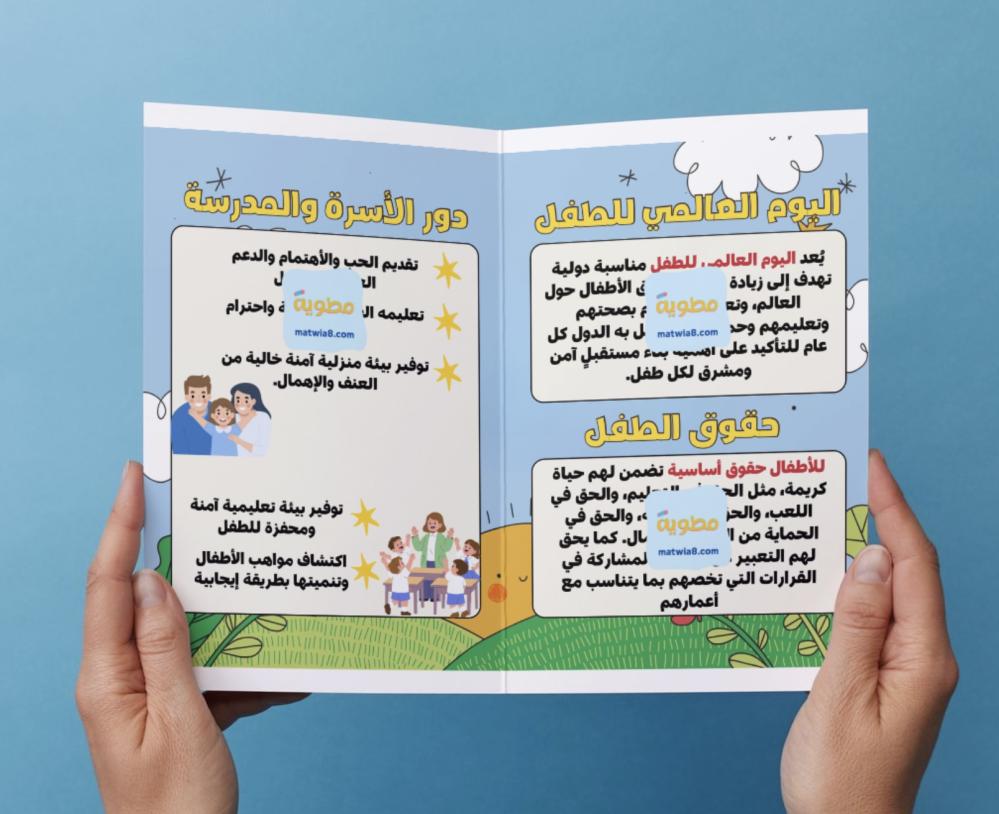 اليوم العالمي للطفل
يُعد اليوم العالمي للطفل مناسبة دولية
تهدف إلى زيادة ق الأطفال حول
العالم، بصحتهم
وتعليمهم به الدول كل
عام للتأكيد على بناء مستقبلٍ آمن
ومشرق لكل طفل.
مطوية
matwia8.com
حقوق الطفل
للأطفال حقوق أساسية تضمن لهم حياة
كريمة، مثل والحق في
اللعب، والحق في
الحماية من كما يحق
لهم التعبير المشاركة في
القرارات التي تخصهم بما يتناسب مع
أعمارهم
مطوية
matwia8.com
دور الأسرة والمدرسة
تقديم الحب والأهتمام والدعم
تعليمه واحترام
توفير بيئة منزلية آمنة خالية من
العنف والإهمال.
مطوية
matwia8.com
توفير بيئة تعليمية آمنة
ومحفزة للطفل
اكتشاف مواهب الأطفال
وتنميتها بطريقة إيجابية